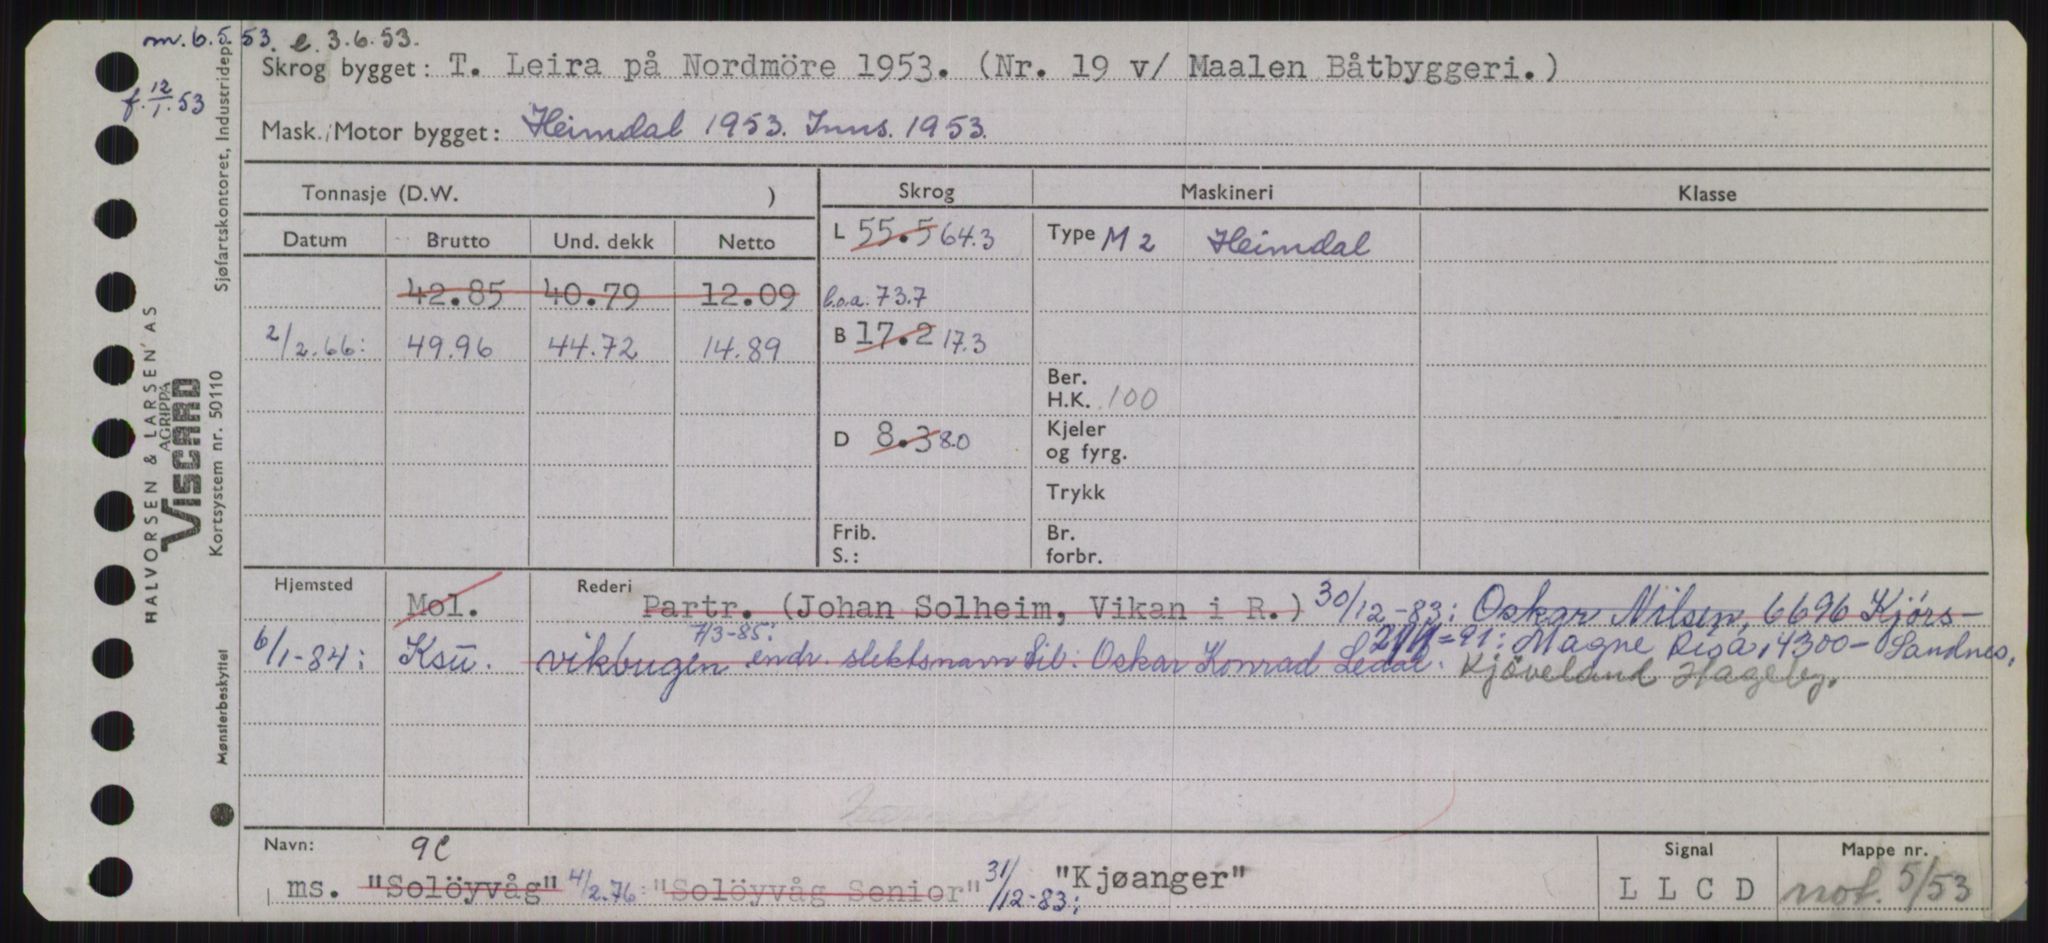 m. 6.5.53. e. 3.6.53.
f. 12/1.53
Skrog bygget: T. Leira på Nordmöre 1953. (Nr. 19 v/ Maalen Båtbyggeri.)
Mask./Motor bygget: Heimdal 1953. Inns. 1953.
Tonnasje (D.W. ) Skrog Maskineri Klasse
Datum Brutto Und. dekk Netto L 55.5 64.3 Type M 2 Heimdal
42.85 40.79 12.09 l.o.a. 73.7
2/2.66: 49.96 44.72 14.89 B 17.2 17.3
Ber.
H.K. 100
D 8.3 8.0 Kjeler
og fyrg.
Trykk
Frib. Br.
S.: forbr.
Hjemsted Mol. Rederi Partr. (Johan Solheim, Vikan i R.) 30/12-83: Oskar Nilsen, 6696 Kjörs-
6/1-84: Ksu. vikbugen 7/3-85: endr. slektsnavn til: Oskar Konrad Ledal. =91: Magne Risa, 4300- Sandnes,
Kjöveland Hageby.
Navn: 9c Signal Mappe nr.
ms. "Solöyvåg" 4/2.76: "Solöyvåg Senior" 31/12-83: "Kjøanger" L L C D not. 5/53
HALVORSEN & LARSEN AS
AGRIPPA
VISCARD
Kortsystem nr. 50110
Sjøfartskontoret, Industridep.
Mønsterbeskyttet